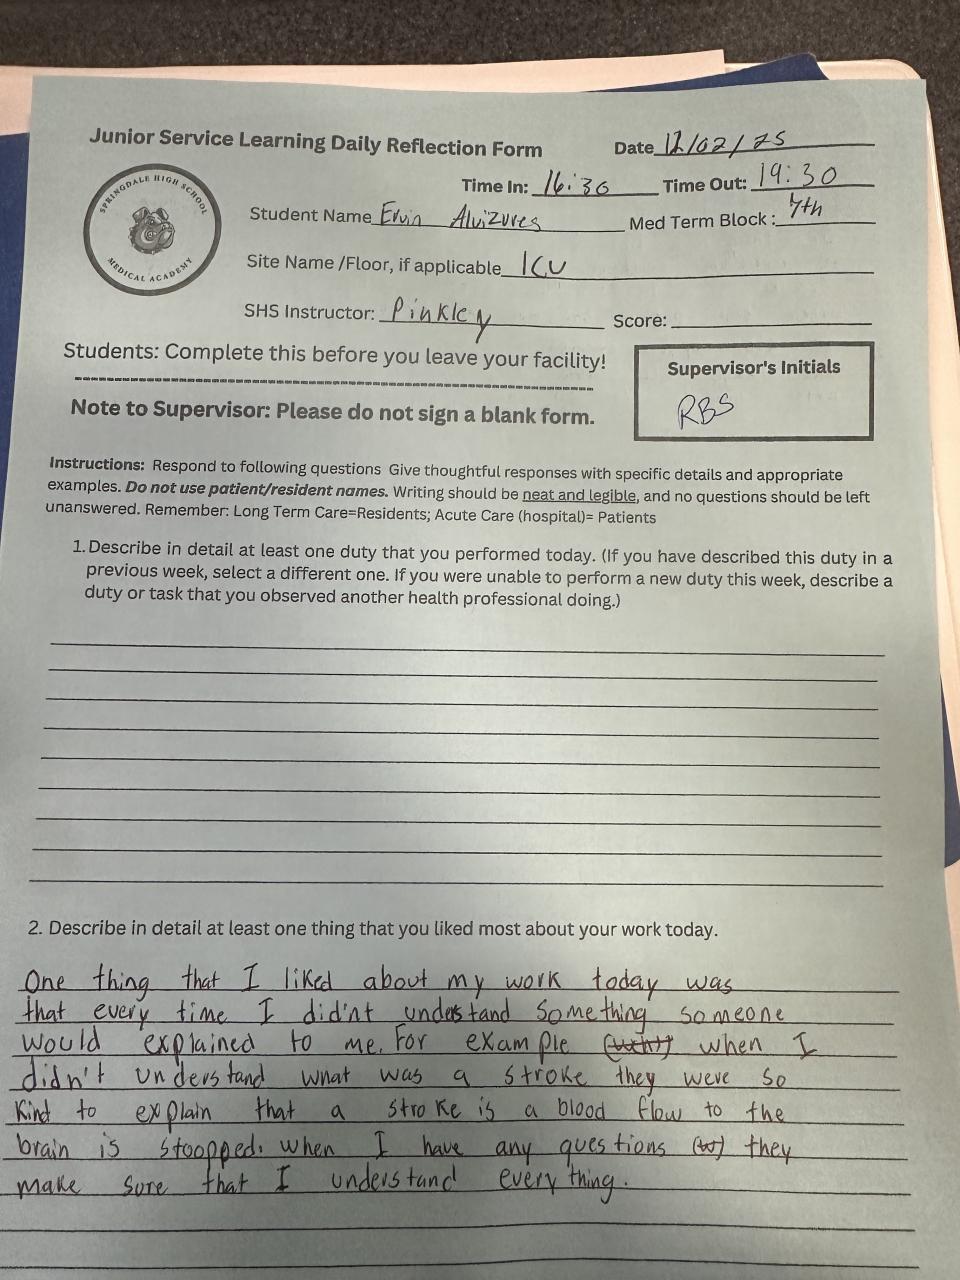 Junior Service Learning Daily Reflection Form
Date 12/02/25
Time In: 16:30 Time Out: 19:30
SPRINGDALE HIGH SCHOOL
MEDICAL ACADEMY
Student Name Ervin Alvizures Med Term Block: 7th
Site Name /Floor, if applicable ICU
SHS Instructor: Pinkley Score:
Students: Complete this before you leave your facility!
Supervisor's Initials
RBS
Note to Supervisor: Please do not sign a blank form.
Instructions: Respond to following questions Give thoughtful responses with specific details and appropriate
examples. Do not use patient/resident names. Writing should be neat and legible, and no questions should be left
unanswered. Remember: Long Term Care=Residents; Acute Care (hospital)= Patients
1. Describe in detail at least one duty that you performed today. (If you have described this duty in a
previous week, select a different one. If you were unable to perform a new duty this week, describe a
duty or task that you observed another health professional doing.)
2. Describe in detail at least one thing that you liked most about your work today.
One thing that I liked about my work today was
that every time I did'nt understand something someone
would explained to me. For example when I
didn't understand what was a stroke they were so
kind to explain that a stroke is a blood flow to the
brain is stoopped. when I have any questions they
make sure that I understand everything.